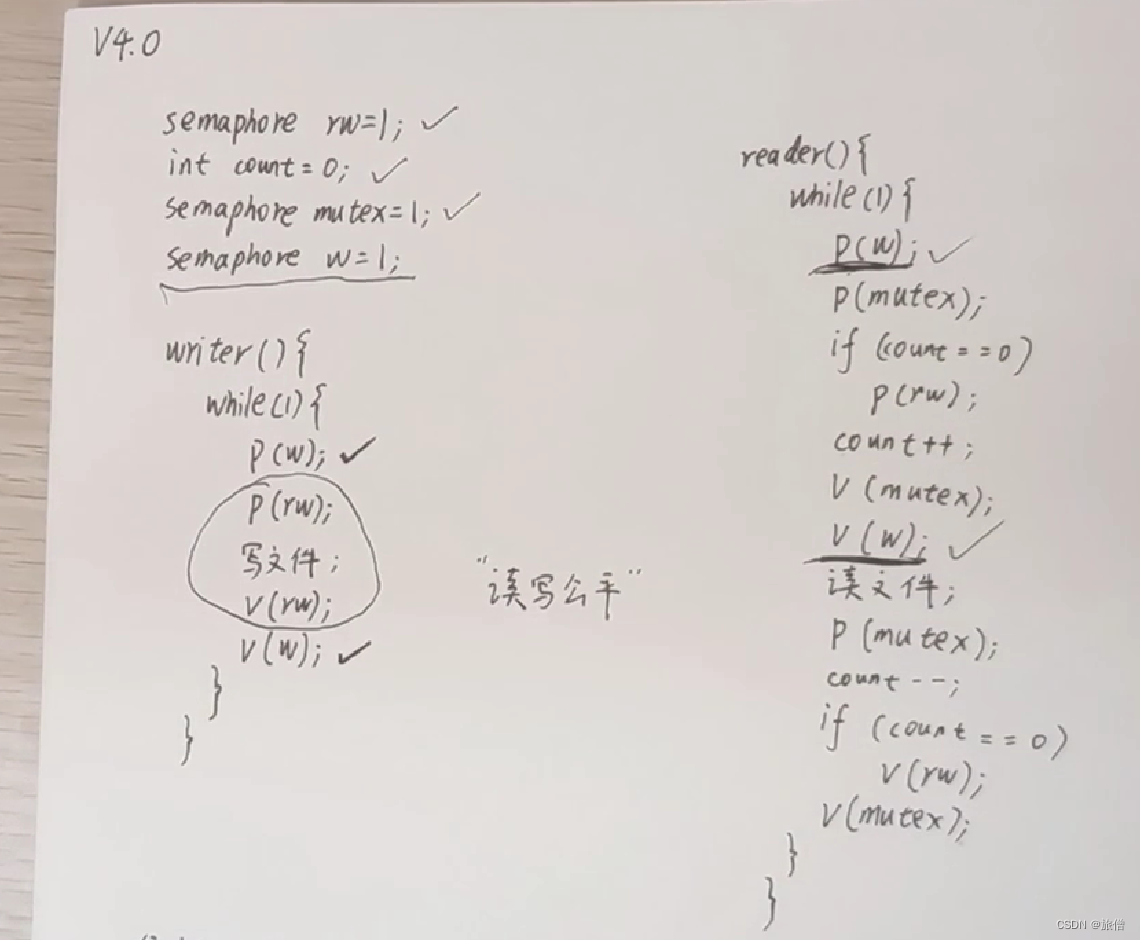 V4.0
semaphore rw=1; ✓
int count=0; ✓
semaphore mutex=1; ✓
semaphore w=1;
writer(){
while(1){
P(w); ✓
P(rw);
写文件;
V(rw);
V(w); ✓
}
}
"读写公平"
reader(){
while(1){
P(w); ✓
P(mutex);
if (count==0)
P(rw);
count++;
V(mutex);
V(w); ✓
读文件;
P(mutex);
count--;
if (count==0)
V(rw);
V(mutex);
}
}
CSDN @旅僧